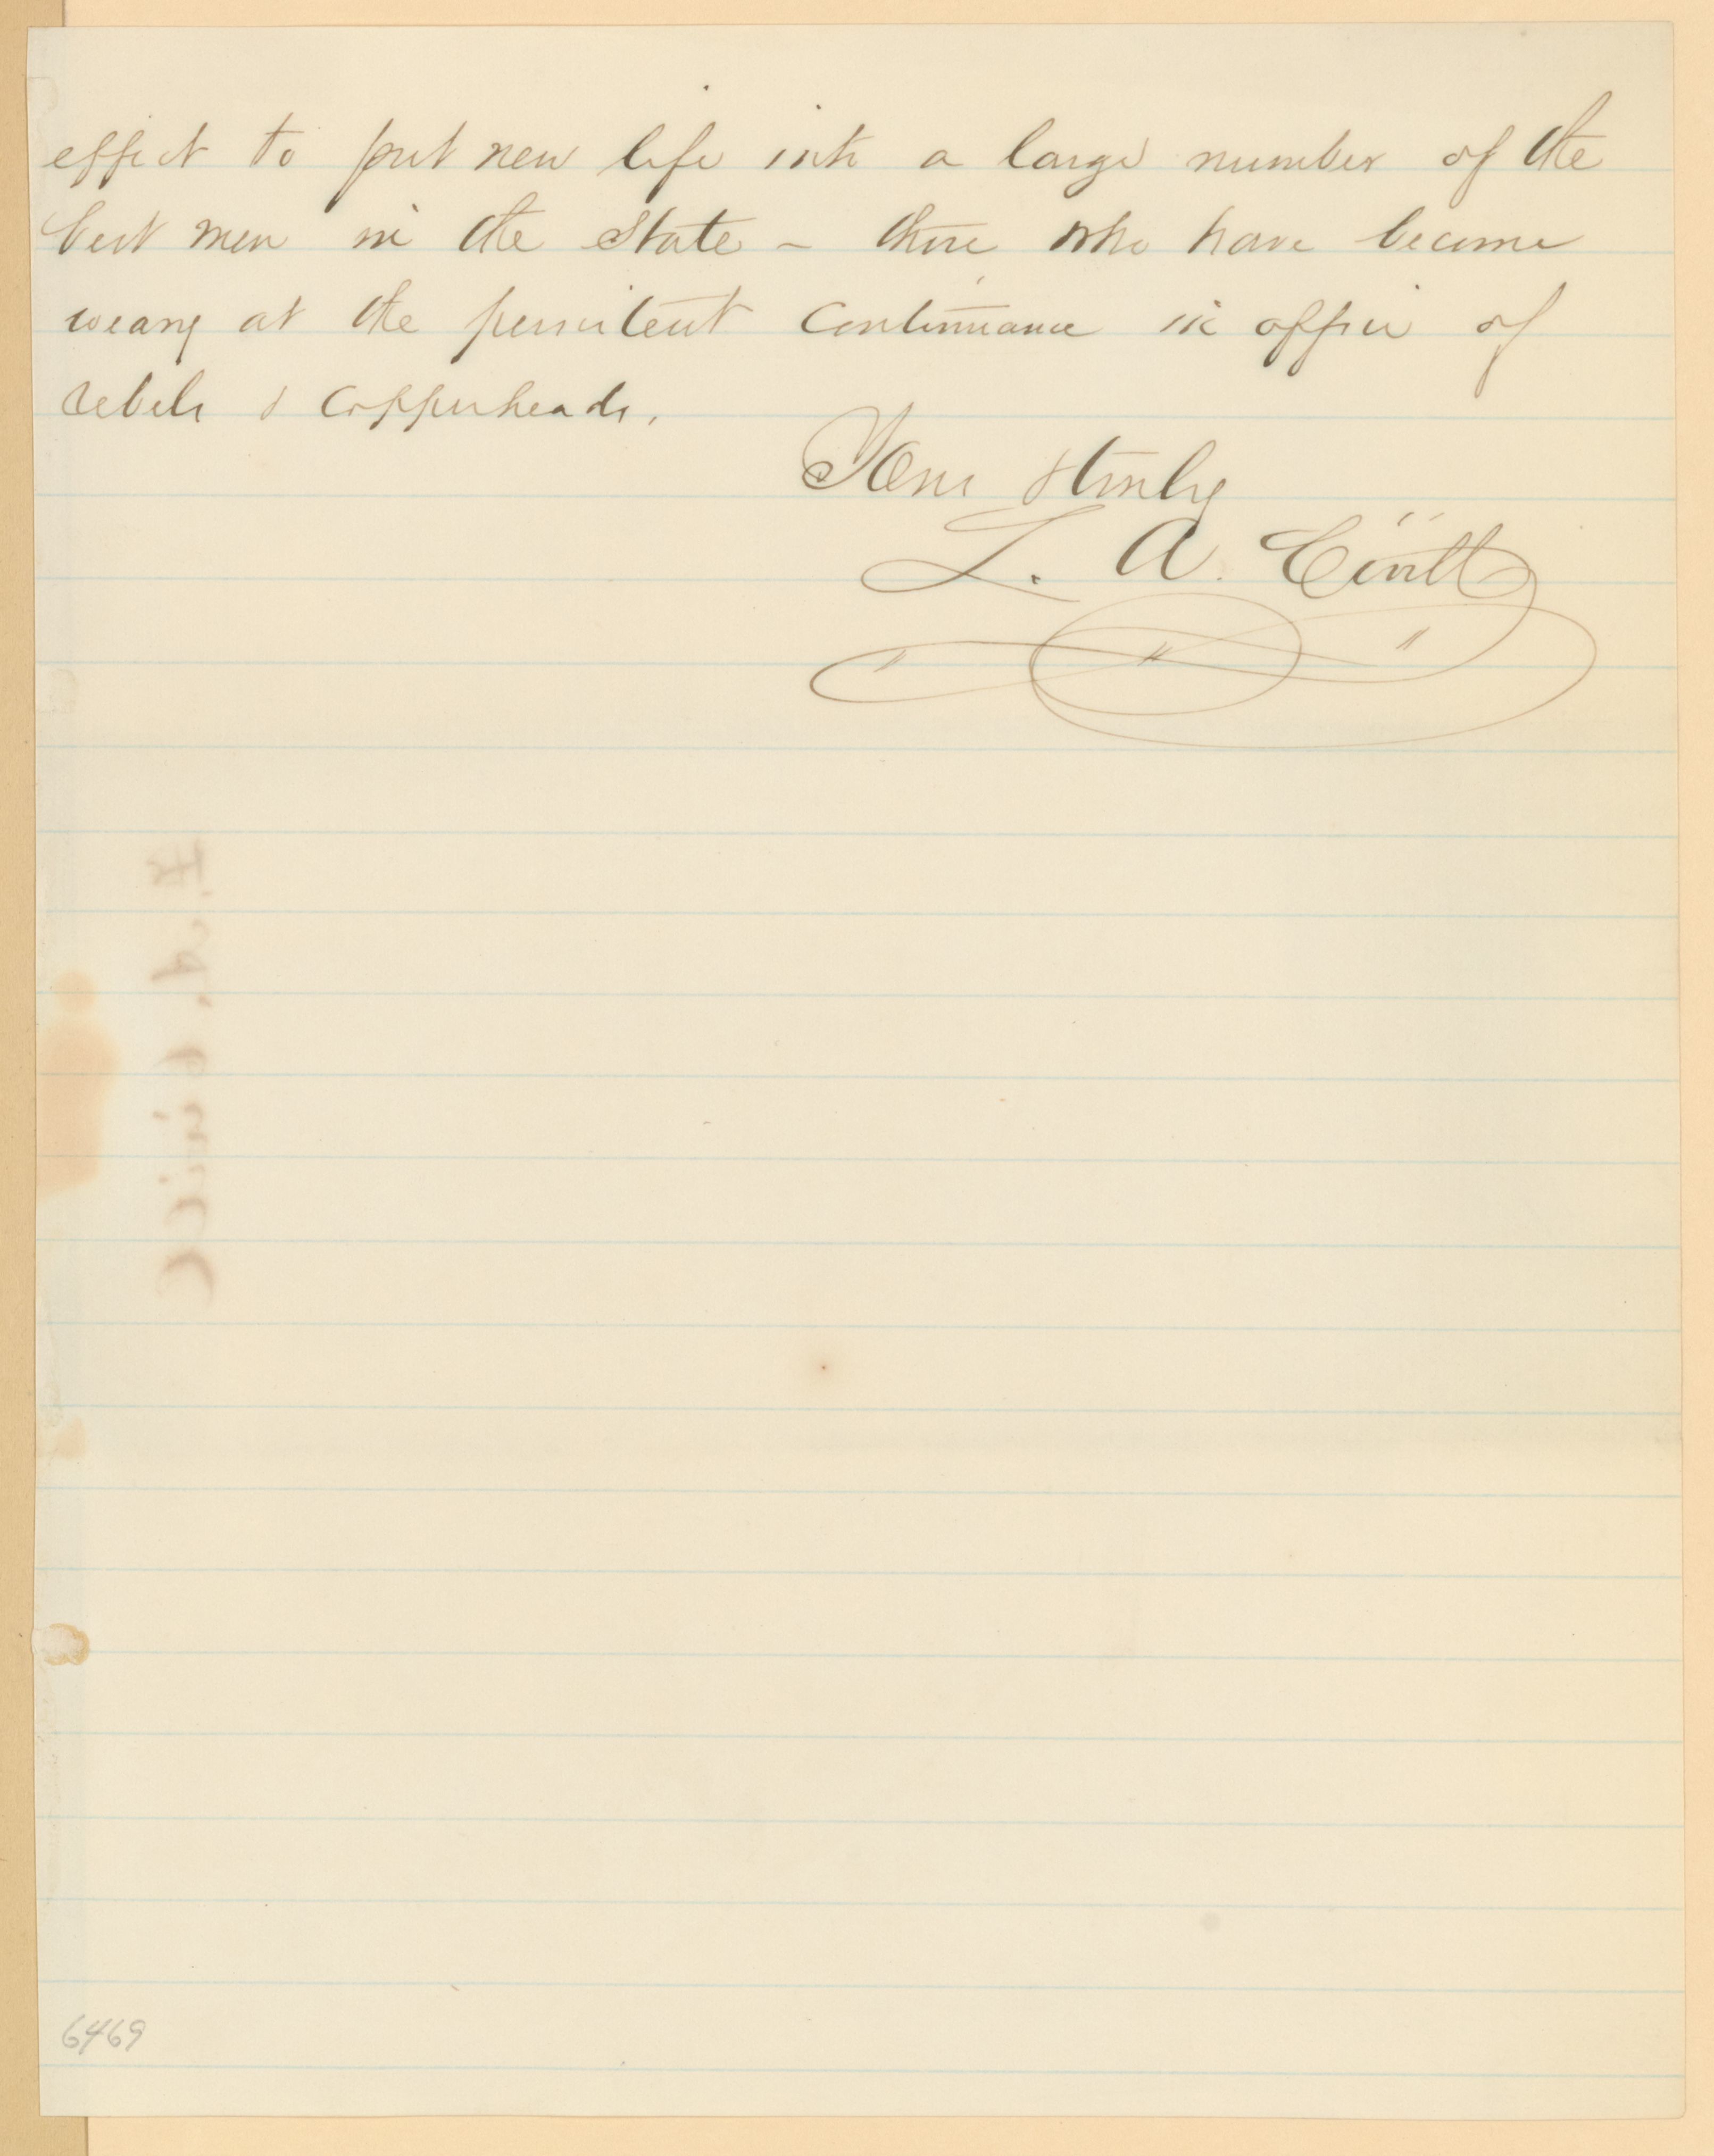 effect to put new life into a large number of the
best men in the State – those who have become
weary at the persistent continuance in office of
rebels & copperheads.
Yours truly
L. A.
6469